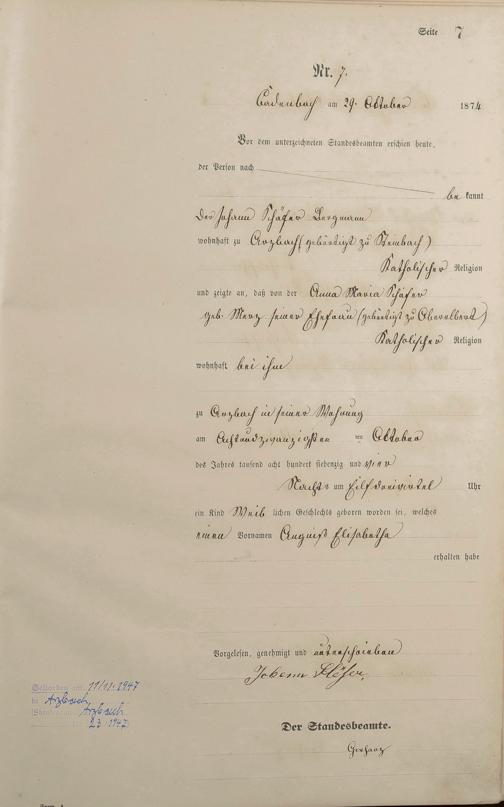 Seite 7
Nr. 7.
Cadenbach am 29. Oktober 1874
Vor dem unterzeichneten Standesbeamten erschien heute,
der Person nach
be kannt
Der Johann Schäfer Bergmann
wohnhaft zu Arzbach (gebürtigt zu Steinbach)
Katholischer Religion
und zeigte an, daß von der Anna Maria Schäfer
geb. Merz seiner Ehefrau (gebürtigt zu Oberelbert)
Katholischer Religion
wohnhaft bei ihm
zu Arzbach in seiner Wohnung
am Achtundzwanzigsten ten Oktober
des Jahres tausend acht hundert siebenzig und vier
Nachts um Eilf dreiviertel Uhr
ein Kind Weib lichen Geschlechts geboren worden sei, welches
einen Vornamen Elisabetha
erhalten habe
Vorgelesen, genehmigt und unterschrieben
Johann
Gestorben am 11/11. 1947
in Arzbach
Arzbach
23/1947
Der Standesbeamte.